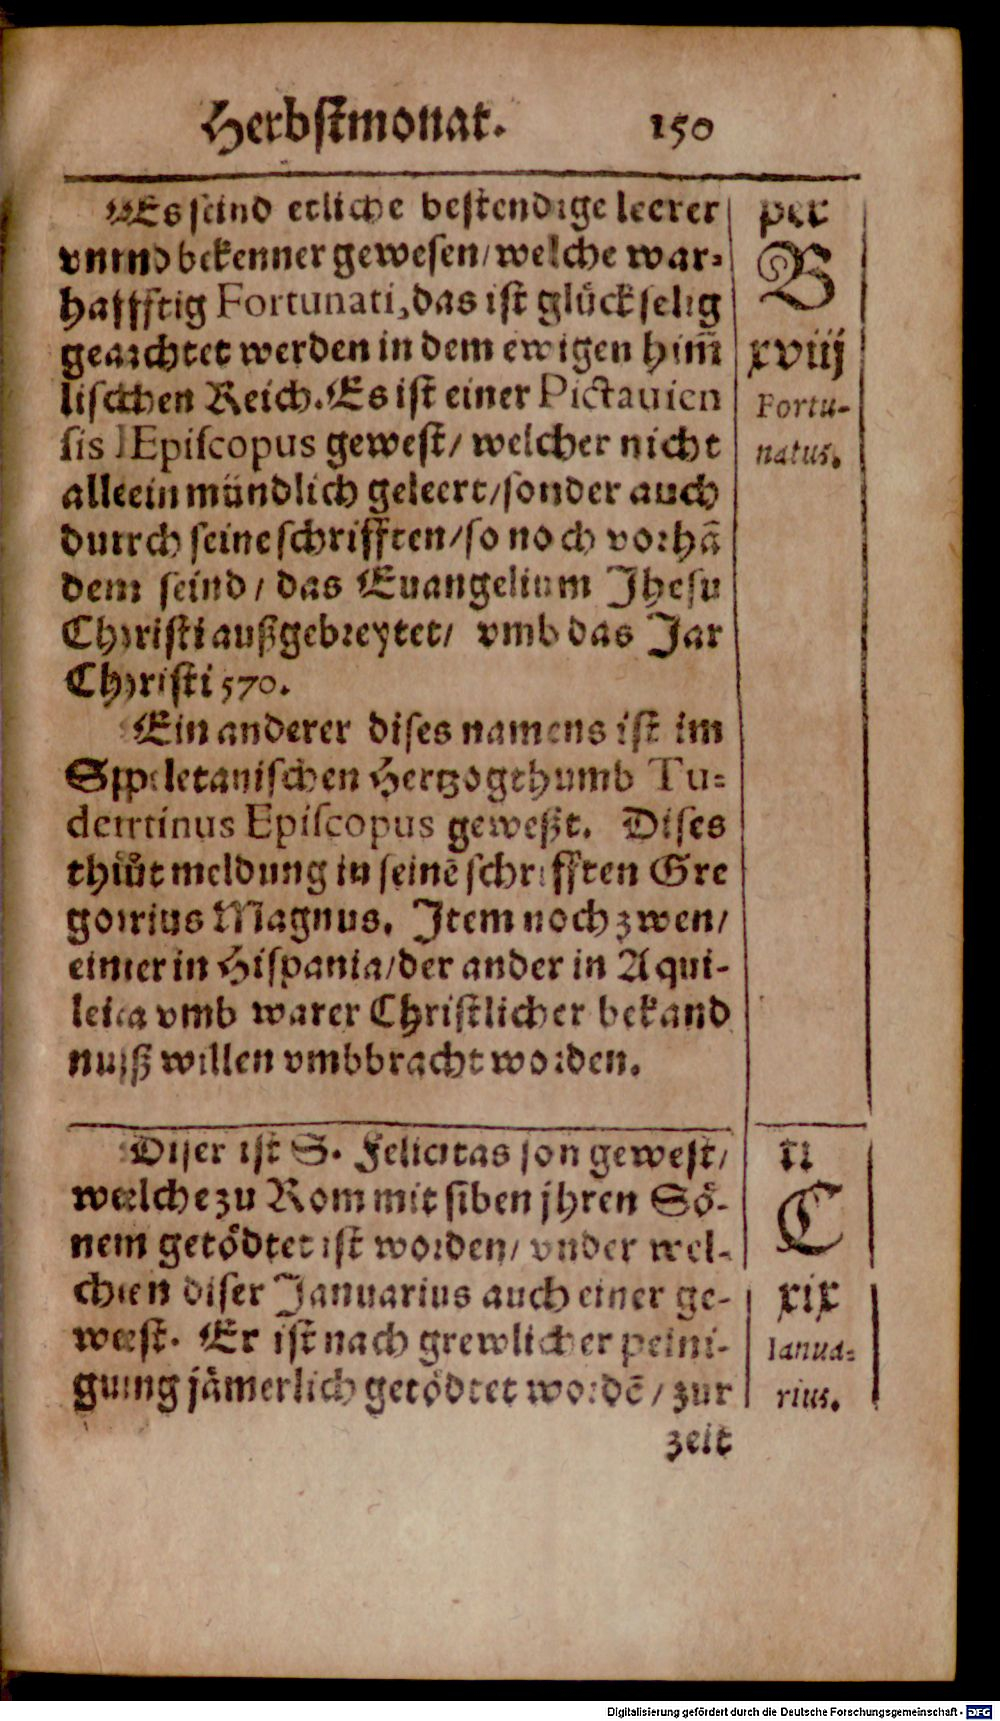 Herbstmonat. 150
Es seind etliche bestendige leerer
vnnd bekenner gewesen/welche war-
hafftig Fortunati, das ist glückselig
geachtet werden in dem ewigen him̃
lischen Reich. Es ist einer Pictauien
sis Episcopus gewest/ welcher nicht
allein mündlich geleert/sonder auch
durch seine schrifften/so noch vorhã
den seind/ das Euangelium Jhesu
Christi außgebreytet/ vmb das Jar
Christi 570.
Ein anderer dises namens ist im
Spoletanischen Hertzogthumb Tu-
dertinus Episcopus geweßt. Dises
thůt meldung in seinẽ schrifften Gre
gorius Magnus. Item noch zwen/
einer in Hispania/der ander in Aqui-
leia vmb warer Christlicher bekand
nuß willen vmbbracht worden.
per
B
xviij
Fortu-
natus.
Diser ist S. Felicitas son gewest/
welche zu Rom mit siben jhren Sö-
nen getödtet ist worden/ vnder wel-
chen diser Januarius auch einer ge-
west. Er ist nach grewlicher peini-
gung jämerlich getödtet wordẽ/ zur
zeit
n
C
xix
Ianua-
rius.
Digitalisierung gefördert durch die Deutsche Forschungsgemeinschaft - DFG